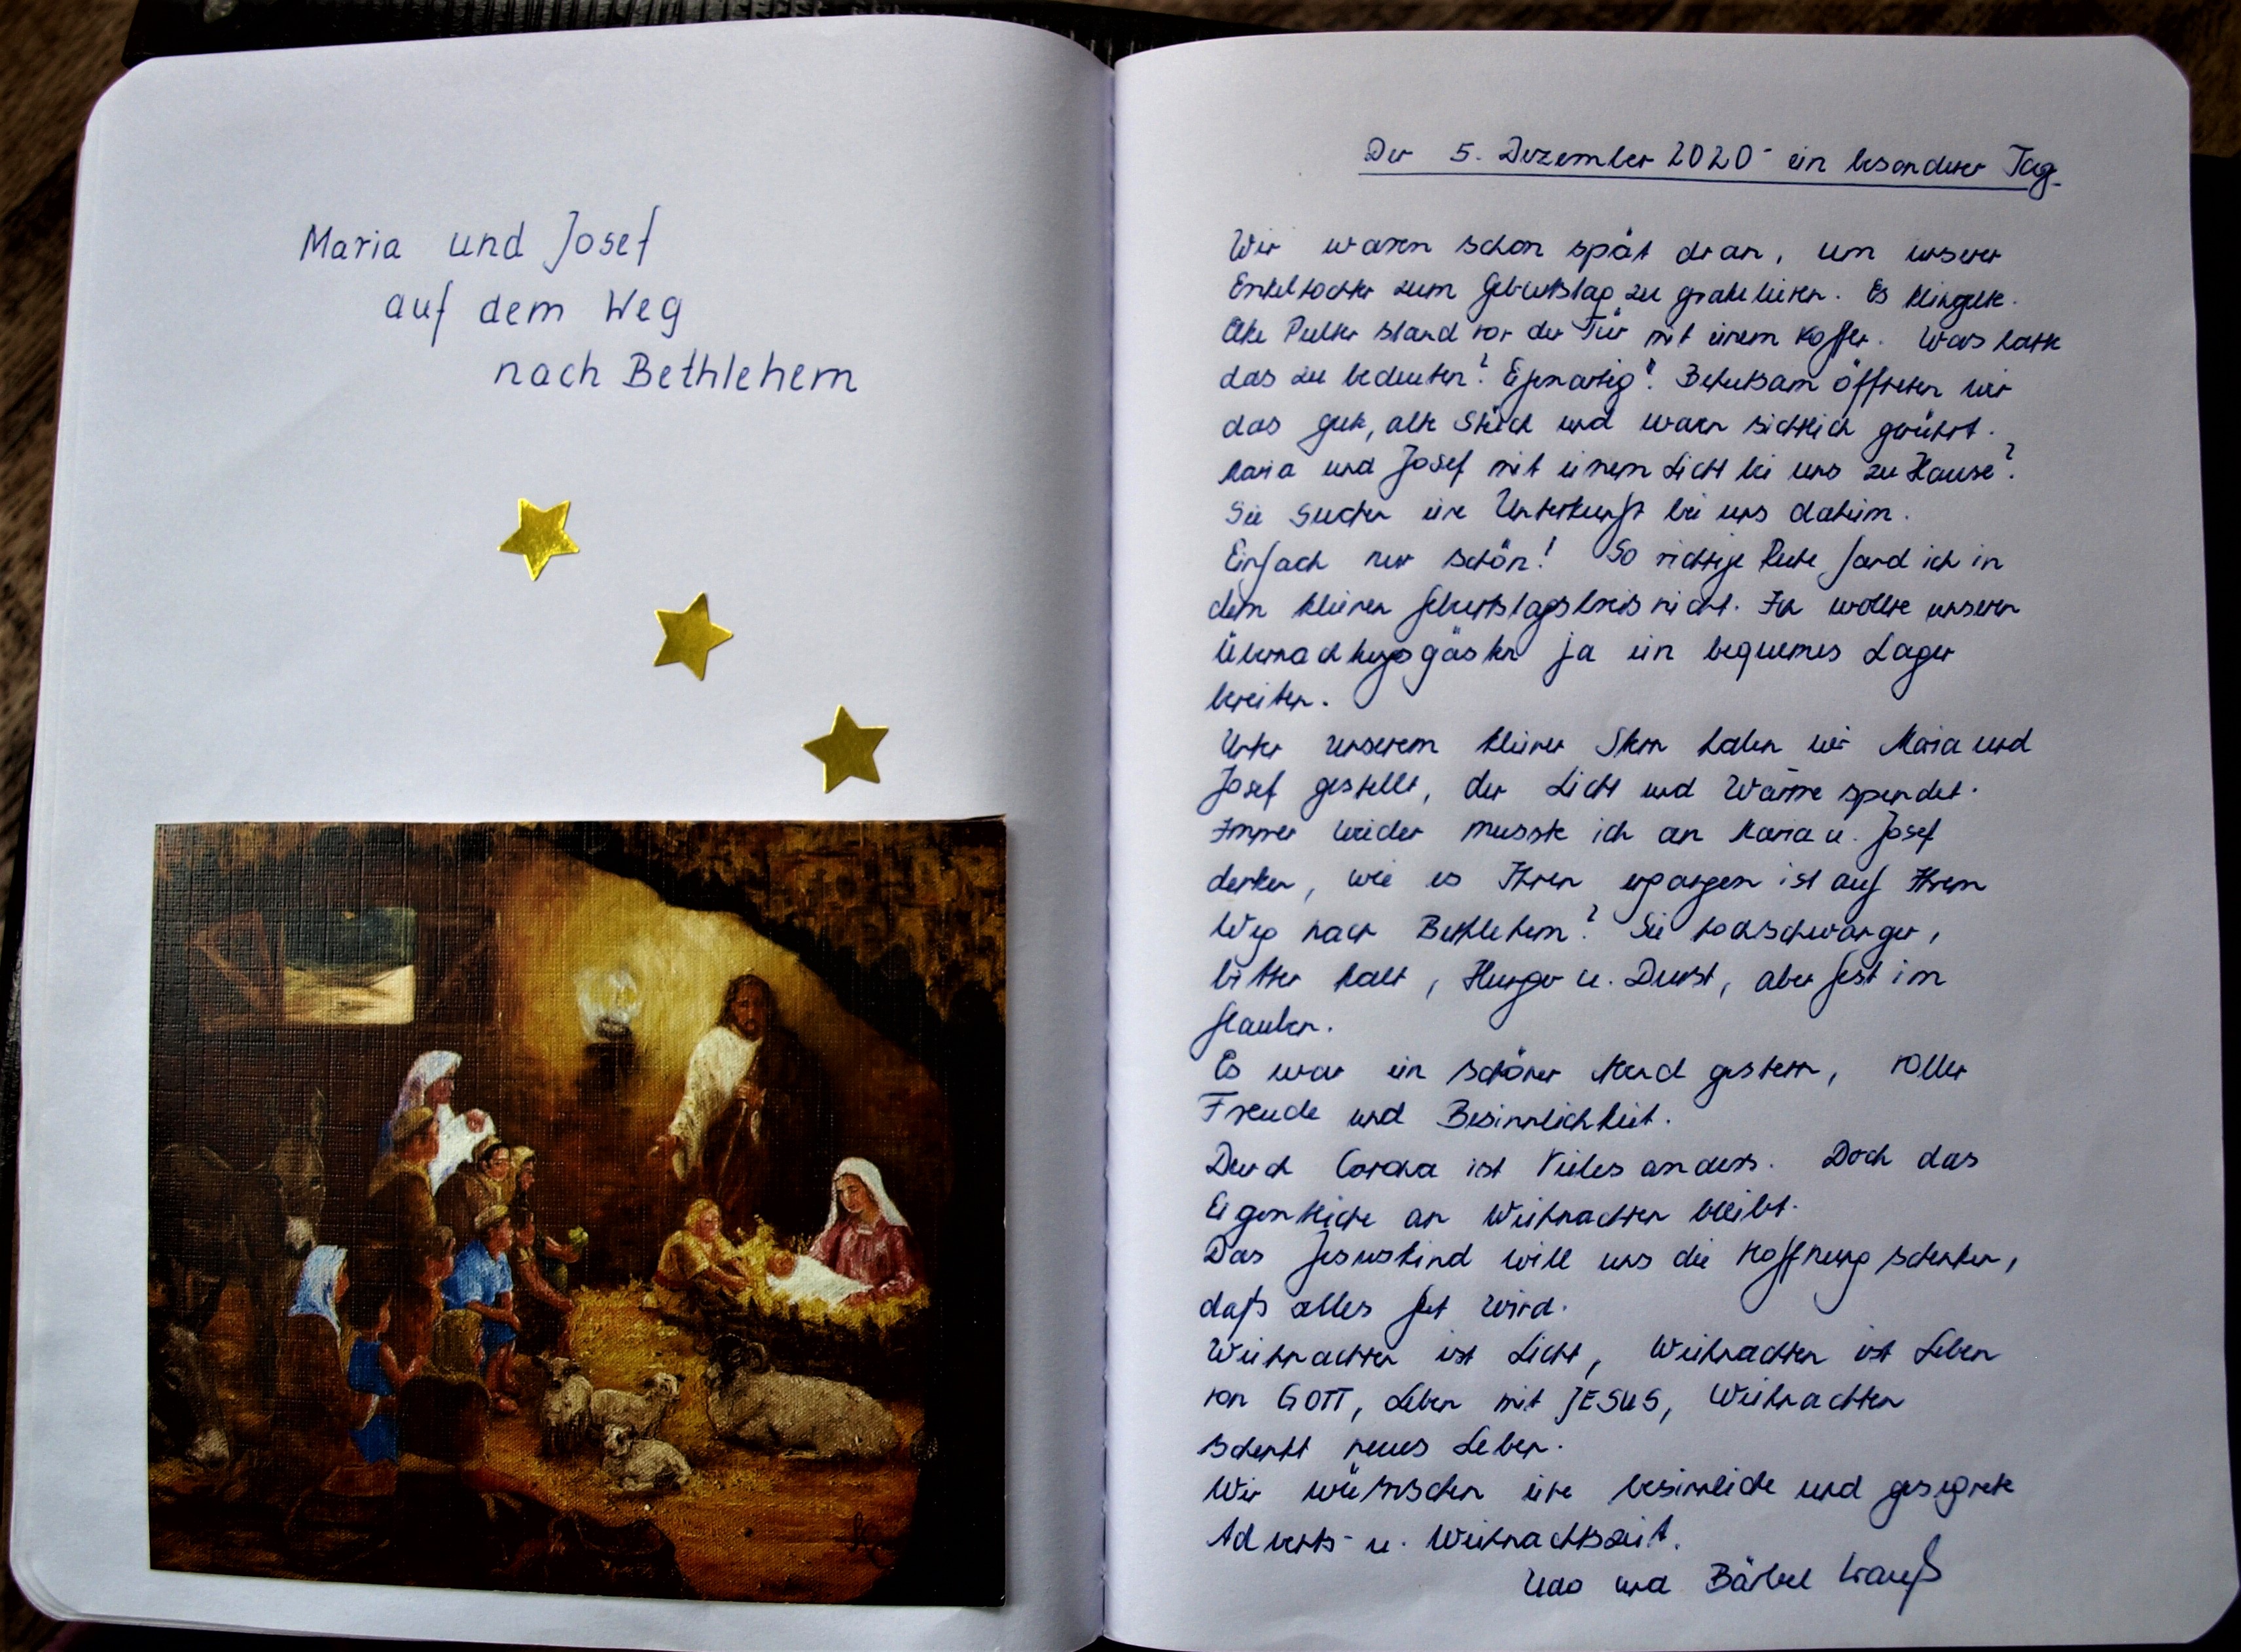 Maria und Josef
auf dem Weg
nach Bethlehem
Der 5. Dezember 2020 - ein besonderer Tag.
Wir waren schon spät dran, um unserer
Enkeltochter zum Geburtstag zu gratulieren. Es klingelte.
Peetker stand vor der Tür mit einem Koffer. Was hatte
das zu bedeuten? Eigenartig? Behutsam öffneten wir
das gute, alte Stück und waren sichtlich gerührt.
Maria und Josef mit einem Licht bei uns zu Hause?
Sie suchen eine Unterkunft bei uns daheim.
Einfach nur schön! So richtige Ruhe fand ich in
dem kleinen Geburtstagskreis nicht. Ich wollte unseren
Übernachtungsgästen ja ein bequemes Lager
bereiten.
Unter unserem kleinen Stern haben wir Maria und
Josef gestellt, der Licht und Wärme spendet.
Immer wieder musste ich an Maria u. Josef
denken, wie es Ihnen ergangen ist auf Ihrem
Weg nach Bethlehem? Sie hochschwanger,
bitter kalt, Hunger u. Durst, aber fest im
Glauben.
Es war ein schöner Abend gestern, voller
Freude und Besinnlichkeit.
Durch Corona ist Vieles anders. Doch das
Eigentliche an Weihnachten bleibt.
Das Jesuskind will uns die Hoffnung schenken,
daß alles gut wird.
Weihnachten ist Licht, Weihnachten ist Leben
von GOTT, Leben mit JESUS, Weihnachten
schenkt neues Leben.
Wir wünschen eine besinnliche und gesegnete
Advents- u. Weihnachtszeit.
Udo und Bärbel